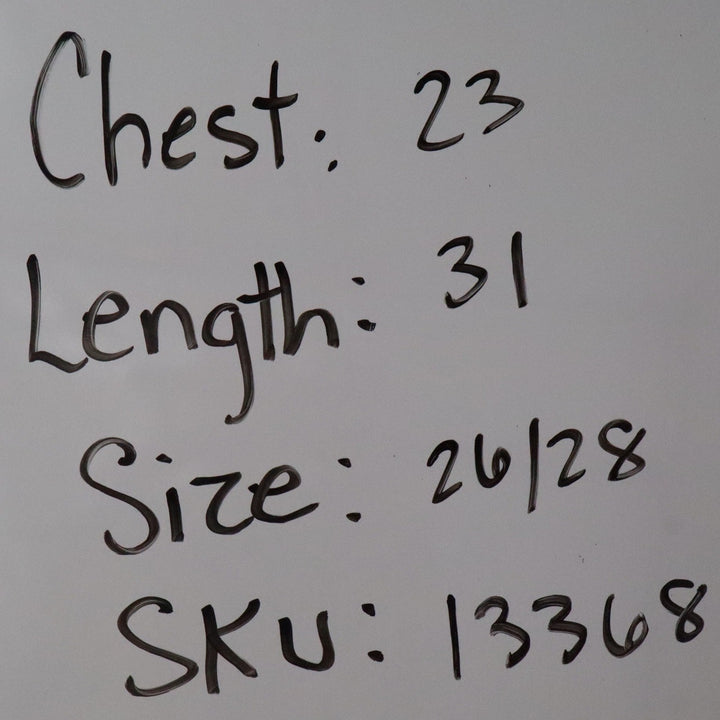 Chest: 23
Length: 31
Size: 26/28
SKU: 13368